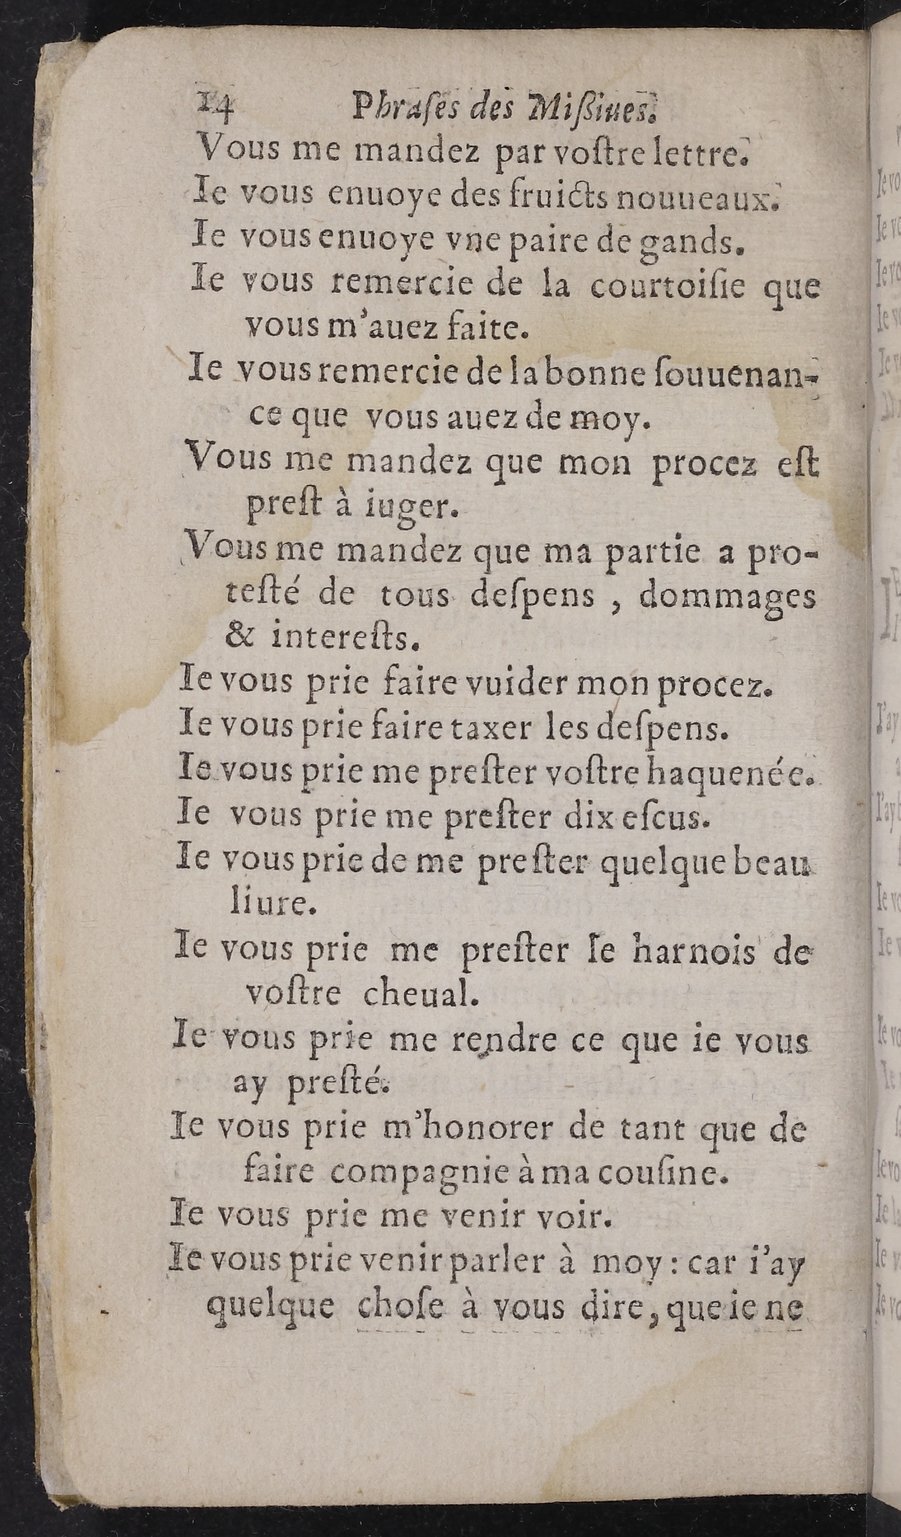 14 Phraſes des Miſſiues.
Vous me mandez par voſtre lettre.
Ie vous enuoye des fruicts nouueaux.
Ie vous enuoye vne paire de gands.
Ie vous remercie de la courtoiſie que
vous m'auez faite.
Ie vous remercie de la bonne ſouuenan-
ce que vous auez de moy.
Vous me mandez que mon procez eſt
preſt à iuger.
Vous me mandez que ma partie a pro-
teſté de tous deſpens , dommages
& intereſts.
Ie vous prie faire vuider mon procez.
Ie vous prie faire taxer les deſpens.
Ie vous prie me preſter voſtre haquenée.
Ie vous prie me preſter dix eſcus.
Ie vous prie de me preſter quelque beau
liure.
Ie vous prie me preſter le harnois de
voſtre cheual.
Ie vous prie me rendre ce que ie vous
ay preſté.
Ie vous prie m'honorer de tant que de
faire compagnie à ma couſine.
Ie vous prie me venir voir.
Ie vous prie venir parler à moy : car i'ay
quelque choſe à vous dire, que ie ne